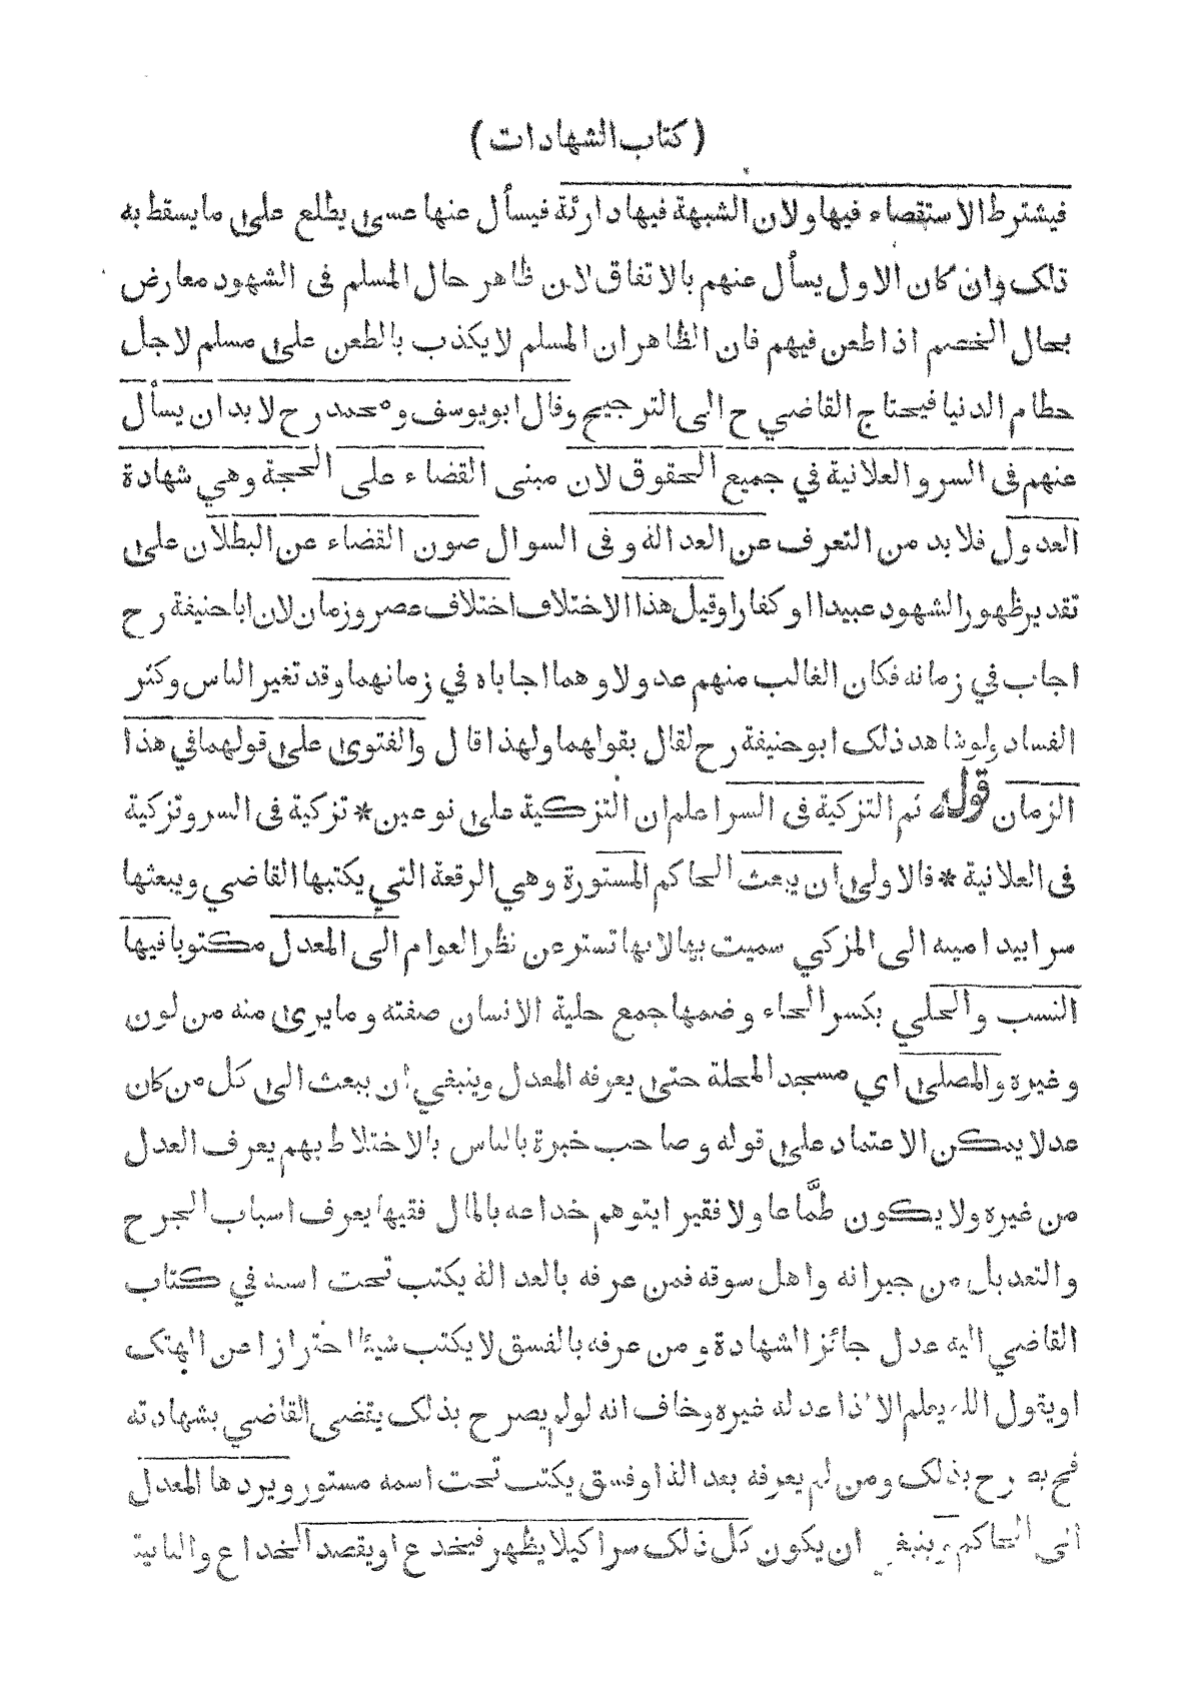 ( كتاب الشهادات )
فيشترط الاستقصاء فيها ولان الشبهة فيها دارئة فيسأل عنها عسى يطلع على ما يسقط به
ذلك وان كان الاول يسأل عنهم بالاتفاق لان ظاهر حال المسلم فى الشهود معارض
بحال الخصم اذا طعن فيهم فان الظاهر ان المسلم لا يكذب بالطعن على مسلم لاجل
حطام الدنيا فيحتاج القاضي ح الى الترجيح وقال ابو يوسف و محمد رح لا بد ان يسأل
عنهم فى السر و العلانية في جميع الحقوق لان مبنى القضاء على الحجة وهي شهادة
العدول فلا بد من التعرف عن العدالة و فى السوال صون القضاء عن البطلان على
تقدير ظهور الشهود عبيدا او كفارا وقيل هذا الاختلاف اختلاف عصر وزمان لان ابا حنيفة رح
اجاب في زمانه فكان الغالب منهم عدولا و هما اجاباه في زمانهما وقد تغير الناس وكثر
الفساد ولو شاهد ذلك ابو حنيفة رح لقال بقولهما ولهذا قال والفتوى على قولهما في هذا
الزمان قوله ثم التزكية فى السر اعلم ان التزكية على نوعين * تزكية فى السر وتزكية
فى العلانية * فالاولى ان يبعث الحاكم المستورة وهي الرقعة التي يكتبها القاضي ويبعثها
سرا بيد امينه الى المزكي سميت بها لانها تستر عن نظر العوام الى المعدل مكتوبا فيها
النسب والحلي بكسر الحاء و ضمها جمع حلية الانسان صفته و ما يرى منه من لون
و غيره والمصلى اي مسجد المحلة حتى يعرفه المعدل وينبغي ان يبعث الى كل من كان
عدلا يمكن الاعتماد على قوله و صاحب خبرة بالناس بالاختلاط بهم يعرف العدل
من غيره ولا يكون طمَّاعا ولا فقيرا يتوهم خداعه بالمال فقيها يعرف اسباب الجرح
والتعديل من جيرانه واهل سوقه فمن عرفه بالعدالة يكتب تحت اسمه في كتاب
القاضي اليه عدل جائز الشهادة و من عرفه بالفسق لا يكتب شيئا احترازا عن الهتك
او يقول الله يعلم الا اذا عدله غيره وخاف انه لو لم يصرح بذلك يقضى القاضي بشهادته
فح يصرح بذلك ومن لم يعرفه بعدالة او فسق يكتب تحت اسمه مستور ويردها المعدل
الى الحاكم وينبغي ان يكون كل ذلك سرا كيلا يظهر فيخدع او يقصد الخداع والثانية